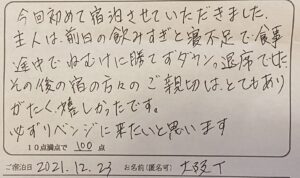 今回初めて宿泊させていただきました。
主人は、前日の飲みすぎと寝不足で、食事
途中でねむけに勝てずダウン。退席でした
その後の宿の方々のご親切は、とてもあり
がたく、嬉しかったです。
必ずリベンジに来たいと思います
10点満点で 100 点
ご宿泊日 2021.12.23 お名前(匿名可) 大阪 T